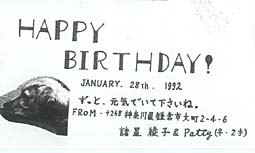 HAPPY
BIRTHDAY!
JANUARY. 28th. 1992
ずっと、元気でいて下さいね。
FROM・〒248 神奈川県鎌倉市大町2-4-6
諸星 綾子 & Patty (♀・2才)